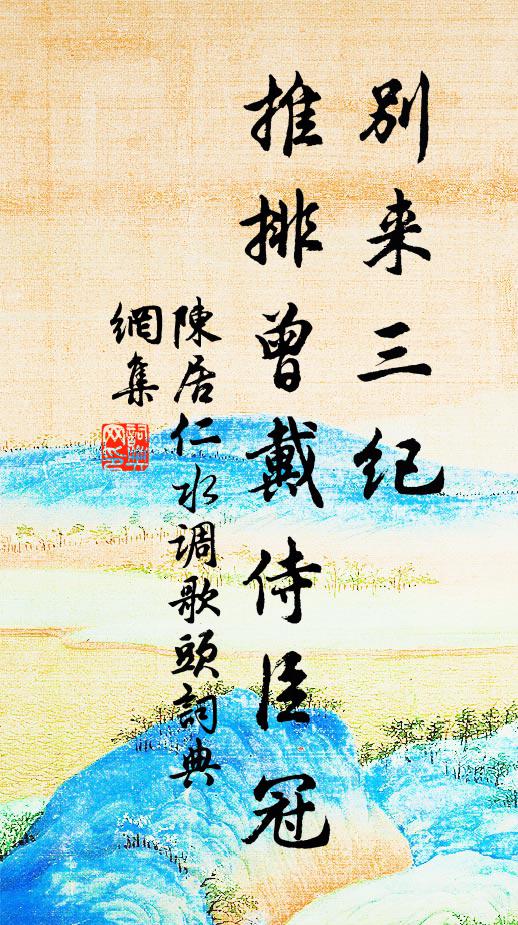 別来三纪
推排曾戴侍臣冠
陳居仁水调歌頭詞典
網集